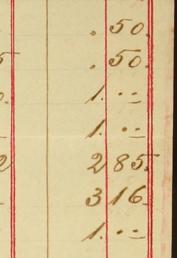 . 50.
. 50.
1. --
1. --
2 85.
3 16.
1. --